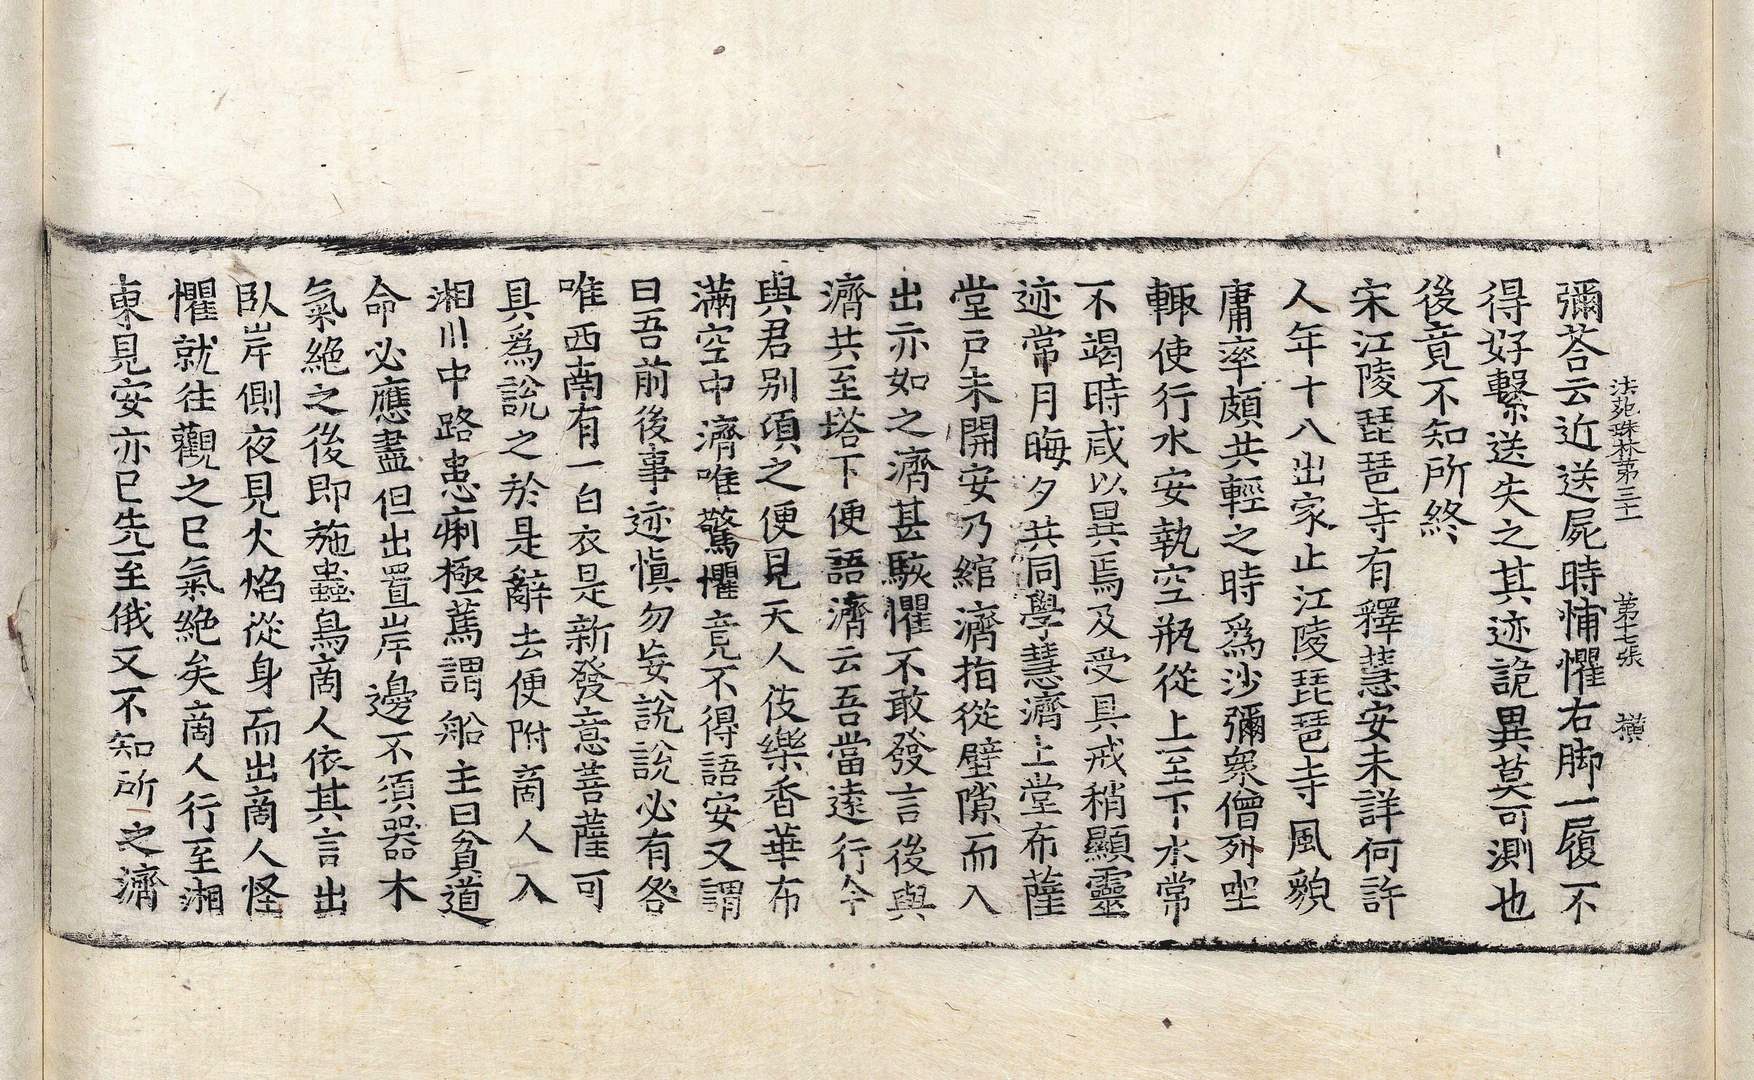 法苑珠林第三十一 第七張 橫
彌荅云近送屍時怖懼右脚一履不
得好繫送失之其迹詭異莫可測也
後竟不知所終
宋江陵琵琶寺有釋慧安未詳何許
人年十八出家止江陵琵琶寺風貌
庸率頗共輕之時爲沙彌衆僧列坐
輙使行水安執空瓶從上至下水常
不竭時咸以異焉及受具戒稍顯靈
迹常月晦夕共同學慧濟上堂布薩
堂戶未開安乃綰濟指從壁隙而入
出亦如之濟甚駭懼不敢發言後與
濟共至塔下便語濟云吾當遠行今
與君别頃之便見天人伎樂香華布
滿空中濟唯驚懼竟不得語安又謂
曰吾前後事迹愼勿妄說說必有咎
唯西南有一白衣是新發意菩薩可
具爲說之於是辭去便附啇人入
湘川中路患痢極萬謂船主曰貧道
命必應盡但出置岸邊不須器木
氣絶之後即施蟲鳥啇人依其言出
臥岸側夜見火焰從身而出啇人怪
懼就往觀之巳氣絶矣啇人行至湘
東見安亦巳先至俄又不知所之濟